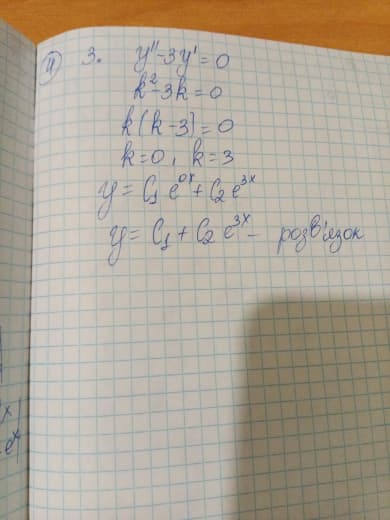 4) 3. y'' - 3y' = 0
k² - 3k = 0
k(k - 3) = 0
k = 0, k = 3
y = C₁ e^{0x} + C₂ e^{3x}
y = C₁ + C₂ e^{3x} - розв'язок
x
e^x